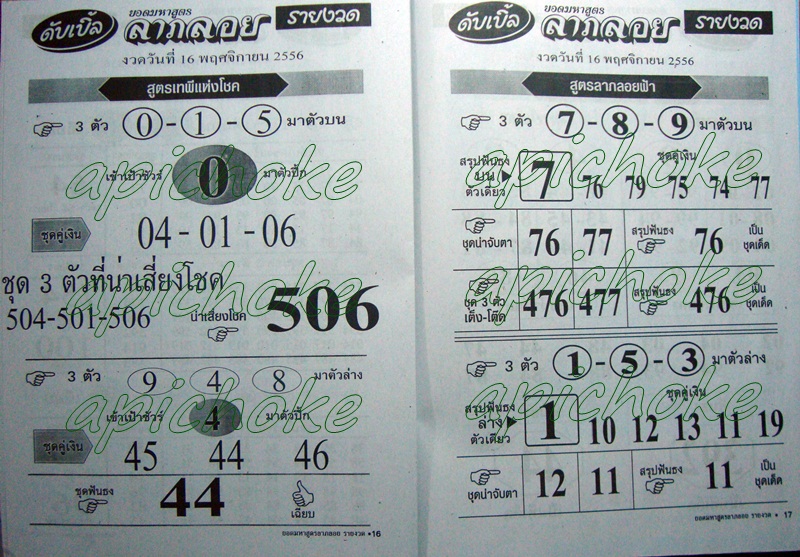 ดับเบิ้ล ยอดมหาสูตร ลาภลอย รายงวด
งวดวันที่ 16 พฤศจิกายน 2556
สูตรเทพีแห่งโชค
3 ตัว 0-1-5 มาตัวบน
เข้าเป้าชัวร์ 0 มาตัวปิ๊ก
ชุดคู่เงิน 04-01-06
ชุด 3 ตัวที่น่าเสี่ยงโชค
504-501-506 น่าเสี่ยงโชค 506
3 ตัว 9 4 8 มาตัวล่าง
เข้าเป้าชัวร์ 4 มาตัวปิ๊ก
ชุดคู่เงิน 45 44 46
ชุดฟันธง 44 เฉียบ
ยอดมหาสูตรลาภลอย รายงวด •16
ดับเบิ้ล ยอดมหาสูตร ลาภลอย รายงวด
งวดวันที่ 16 พฤศจิกายน 2556
สูตรลาภลอยฟ้า
3 ตัว 7-8-9 มาตัวบน
สรุปฟันธง บน ตัวเดียว 7 ชุดคู่เงิน 76 79 75 74 77
ชุดน่าจับตา 76 77 สรุปฟันธง 76 เป็น ชุดเด็ด
ชุด 3 ตัว เต็ง-โต๊ด 476 477 สรุปฟันธง 476 เป็น ชุดเด็ด
3 ตัว 1-5-3 มาตัวล่าง
สรุปฟันธง ล่าง ตัวเดียว 1 ชุดคู่เงิน 10 12 13 11 19
ชุดน่าจับตา 12 11 สรุปฟันธง 11 เป็น ชุดเด็ด
ยอดมหาสูตรลาภลอย รายงวด •17
apichoke apichoke
apichoke apichoke
apichoke apichoke
apichoke apichoke